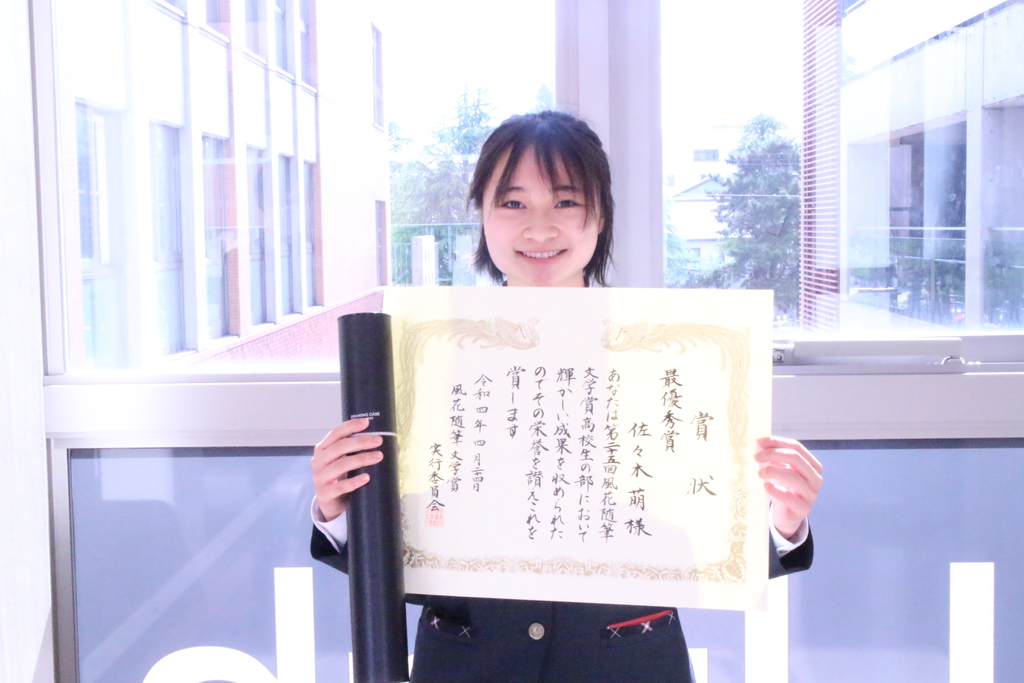 賞状
最優秀賞
佐々木萌様
あなたは第二十五回風花随筆
文学賞高校生の部において
輝かしい成果を収められた
のでその栄誉を讃えこれを
賞します
令和四年四月二十四日
風花随筆文学賞
実行委員会
DRAWING CASE